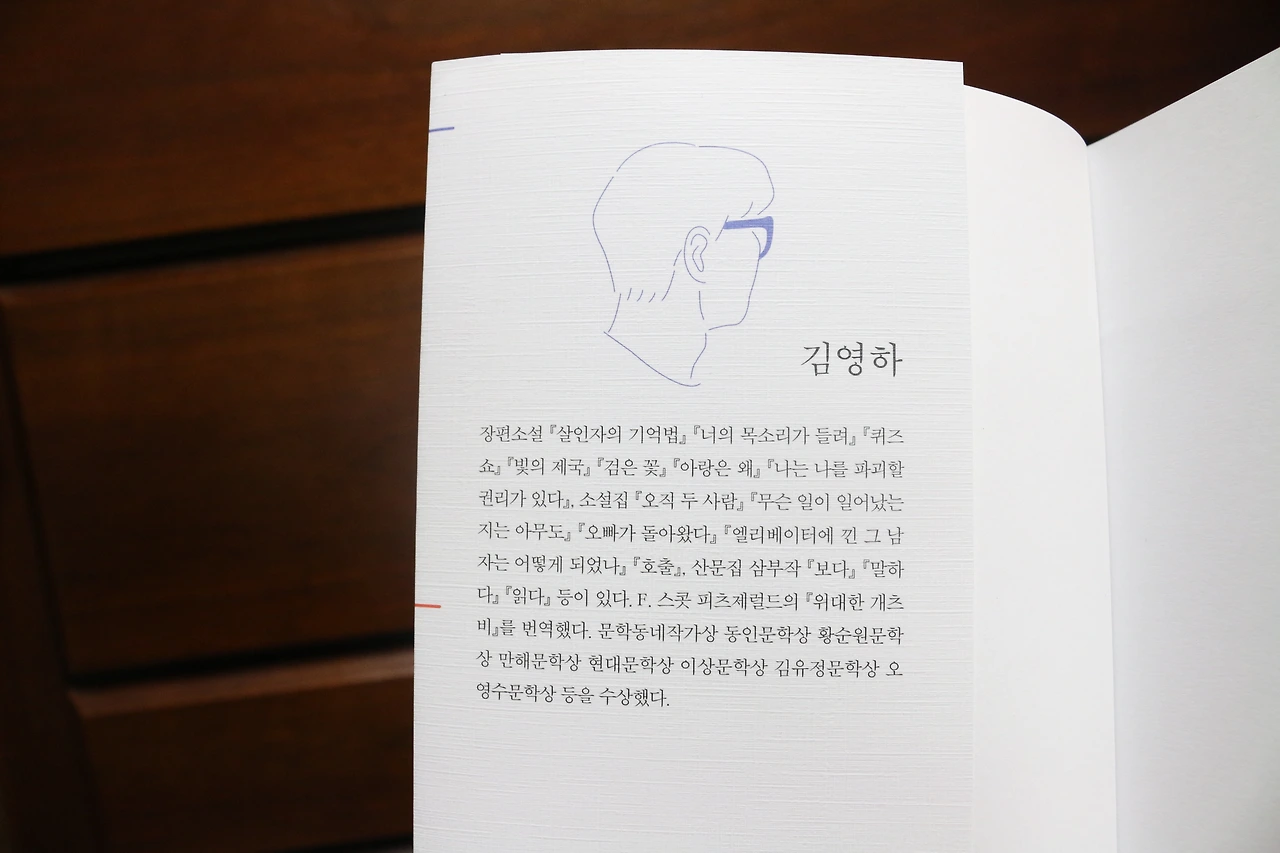 김영하
장편소설 『살인자의 기억법』 『너의 목소리가 들려』 『퀴즈
쇼』 『빛의 제국』 『검은 꽃』 『아랑은 왜』 『나는 나를 파괴할
권리가 있다』, 소설집 『오직 두 사람』 『무슨 일이 일어났는
지는 아무도』 『오빠가 돌아왔다』 『엘리베이터에 낀 그 남
자는 어떻게 되었나』 『호출』, 산문집 삼부작 『보다』 『말하
다』 『읽다』 등이 있다. F. 스콧 피츠제럴드의 『위대한 개츠
비』를 번역했다. 문학동네작가상 동인문학상 황순원문학
상 만해문학상 현대문학상 이상문학상 김유정문학상 오
영수문학상 등을 수상했다.